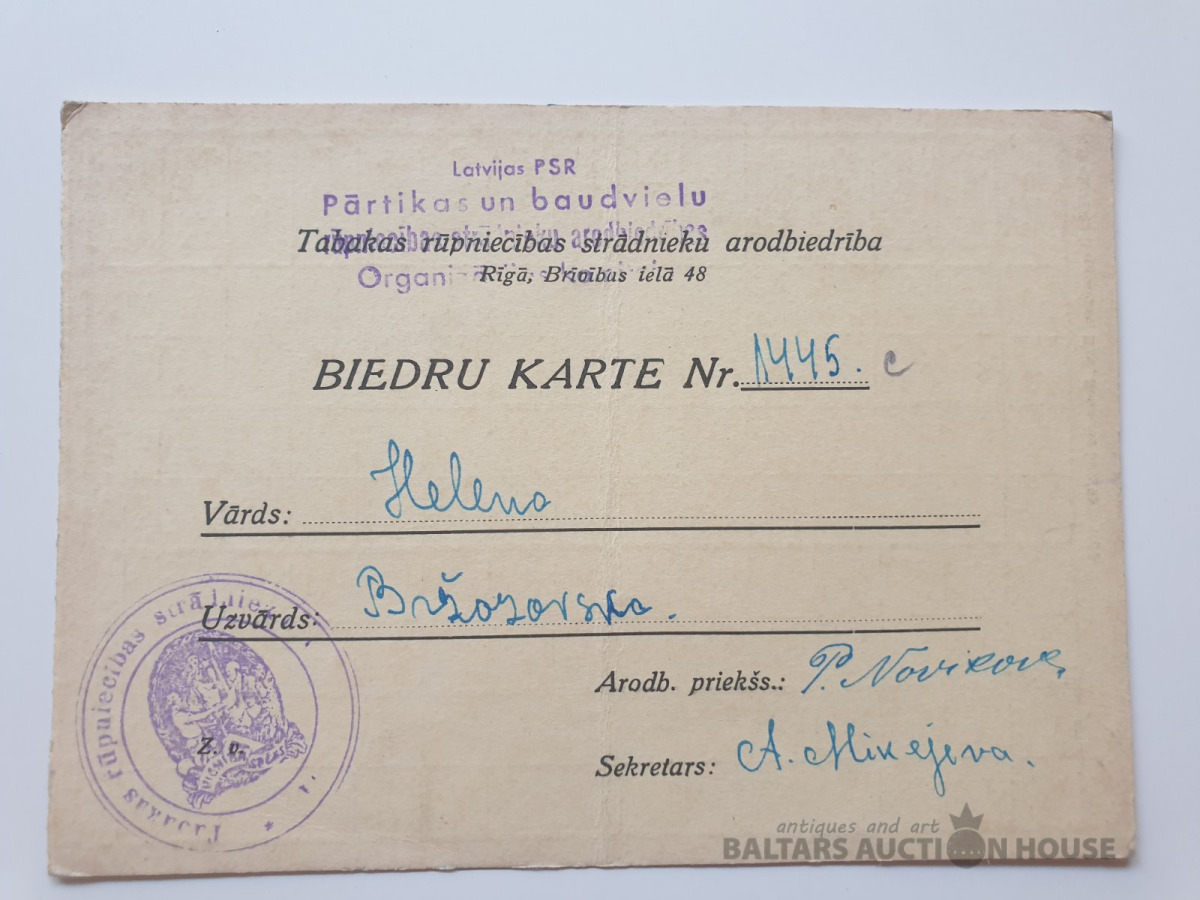 Latvijas PSR
Pārtikas un baudvielu
rūpniecības strādnieku arodbiedrības
Tabakas rūpniecības strādnieku arodbiedrība
Rīgā, Brīvības ielā 48
BIEDRU KARTE Nr. 1445. c
Vārds: Helena
Uzvārds: Bržozovska.
Arodb. priekšs.: P. Novikovs
Sekretars: A. Mikejeva.
Z. v.
rūpniecības
antiques and art
BALTARS AUCTION HOUSE